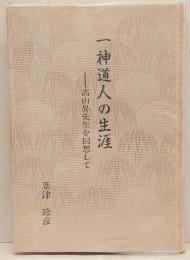 一神道人の生涯
──高山昇先生を回想して
葦津 珍彦